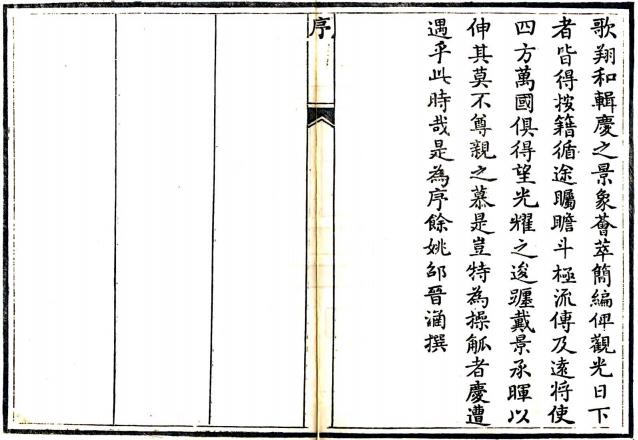 歌翔和輯慶之景象薈萃簡編俾觀光日下
者皆得按籍循途矚瞻斗極流傳及遠將使
四方萬國俱得望光耀之逡躔戴景承暉以
伸其莫不尊親之慕是豈特為操觚者慶遭
遇乎此時哉是為序餘姚邵晉涵撰
序